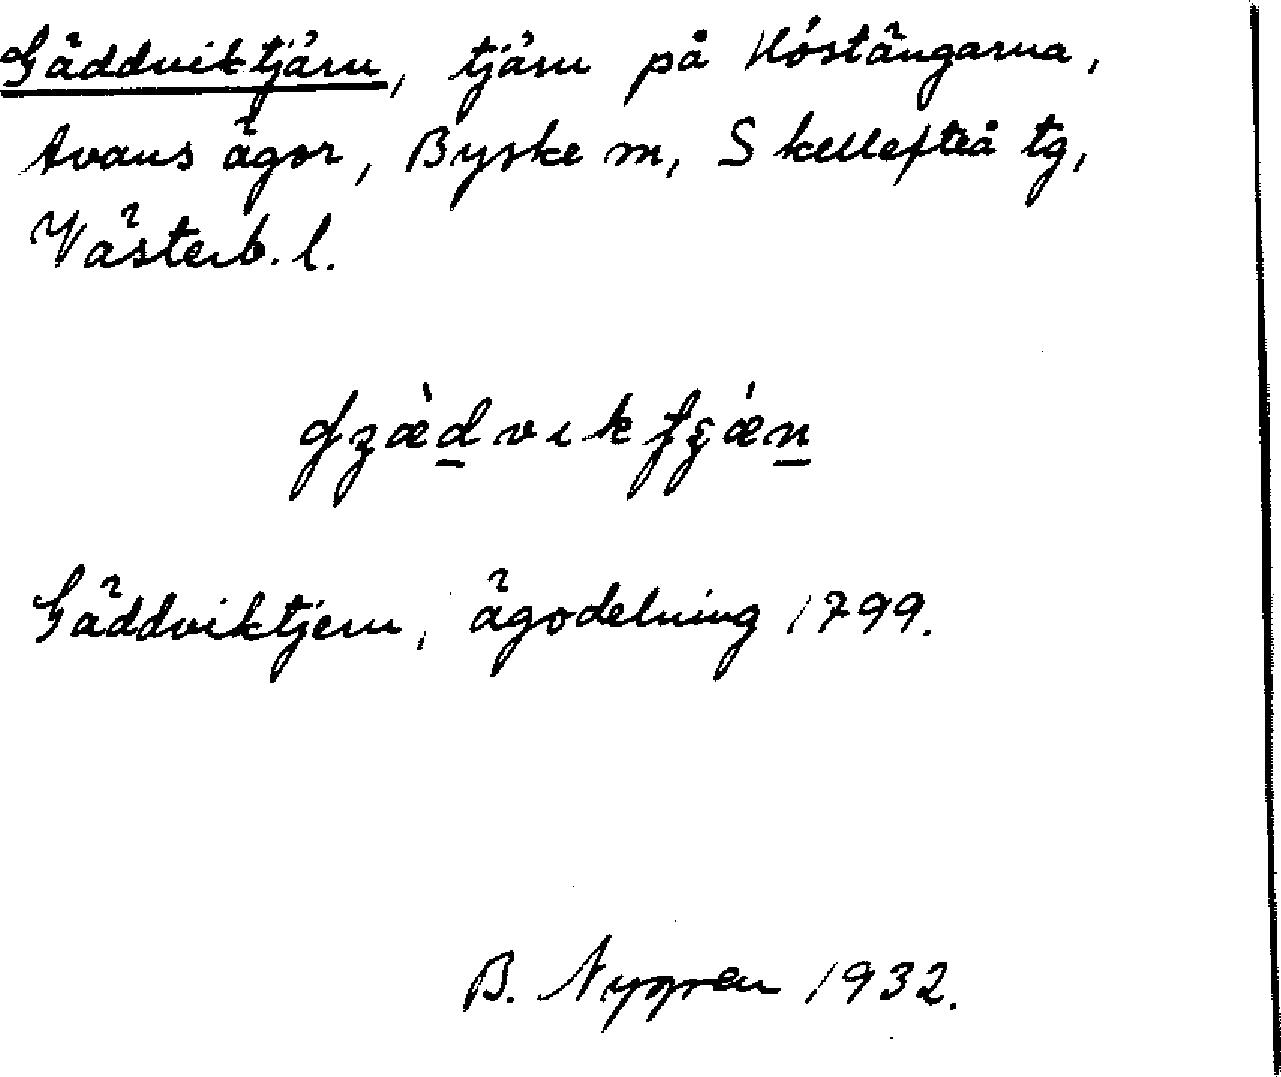 Gäddviktjärn, tjärn på Höstängarna,
Avans ägor, Byske sn, Skellefteå tg,
Västerb. l.
Gäddviktjern, ägodelning 1799.
B. Nygren 1932.